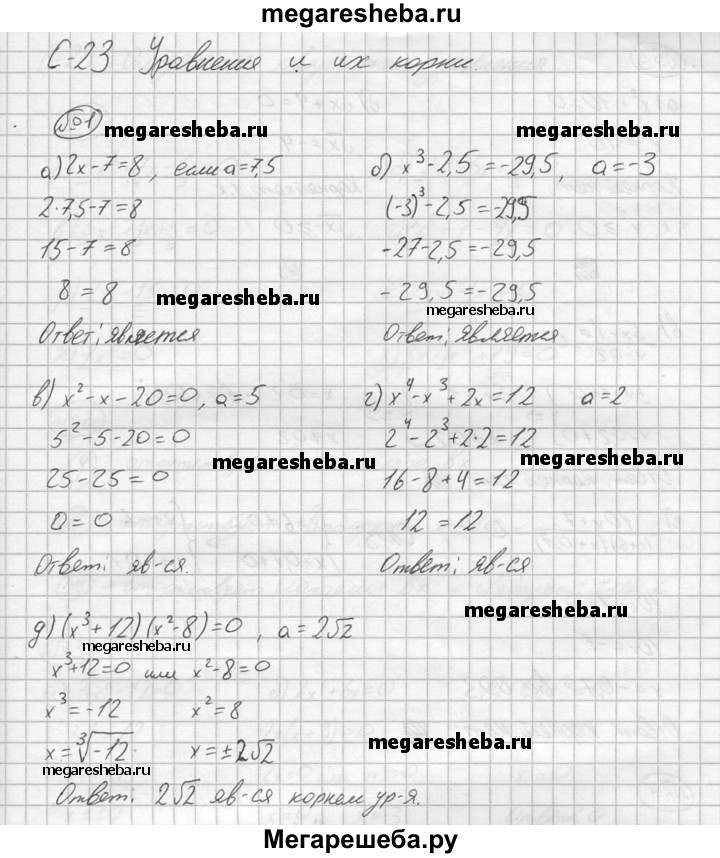 megaresheba.ru
С-23 Уравнения и их корни.
№1
megaresheba.ru
megaresheba.ru
а) 2x-7=8, если a=7,5
2·7,5-7=8
15-7=8
8=8
megaresheba.ru
Ответ: является
б) x³-2,5=-29,5, a=-3
(-3)³-2,5=-29,5
-27-2,5=-29,5
-29,5=-29,5
megaresheba.ru
Ответ: является
в) x²-x-20=0, a=5
5²-5-20=0
25-25=0
megaresheba.ru
0=0
Ответ: яв-ся.
г) x⁴-x³+2x=12 a=2
2⁴-2³+2·2=12
megaresheba.ru
16-8+4=12
12=12
Ответ: яв-ся
megaresheba.ru
д) (x³+12)(x²-8)=0, a=2√2
megaresheba.ru
x³+12=0 или x²-8=0
x³=-12 x²=8
x=∛-12 x=±2√2
megaresheba.ru
megaresheba.ru
Ответ: 2√2 яв-ся корнем ур-я.
Мегарешеба.ру